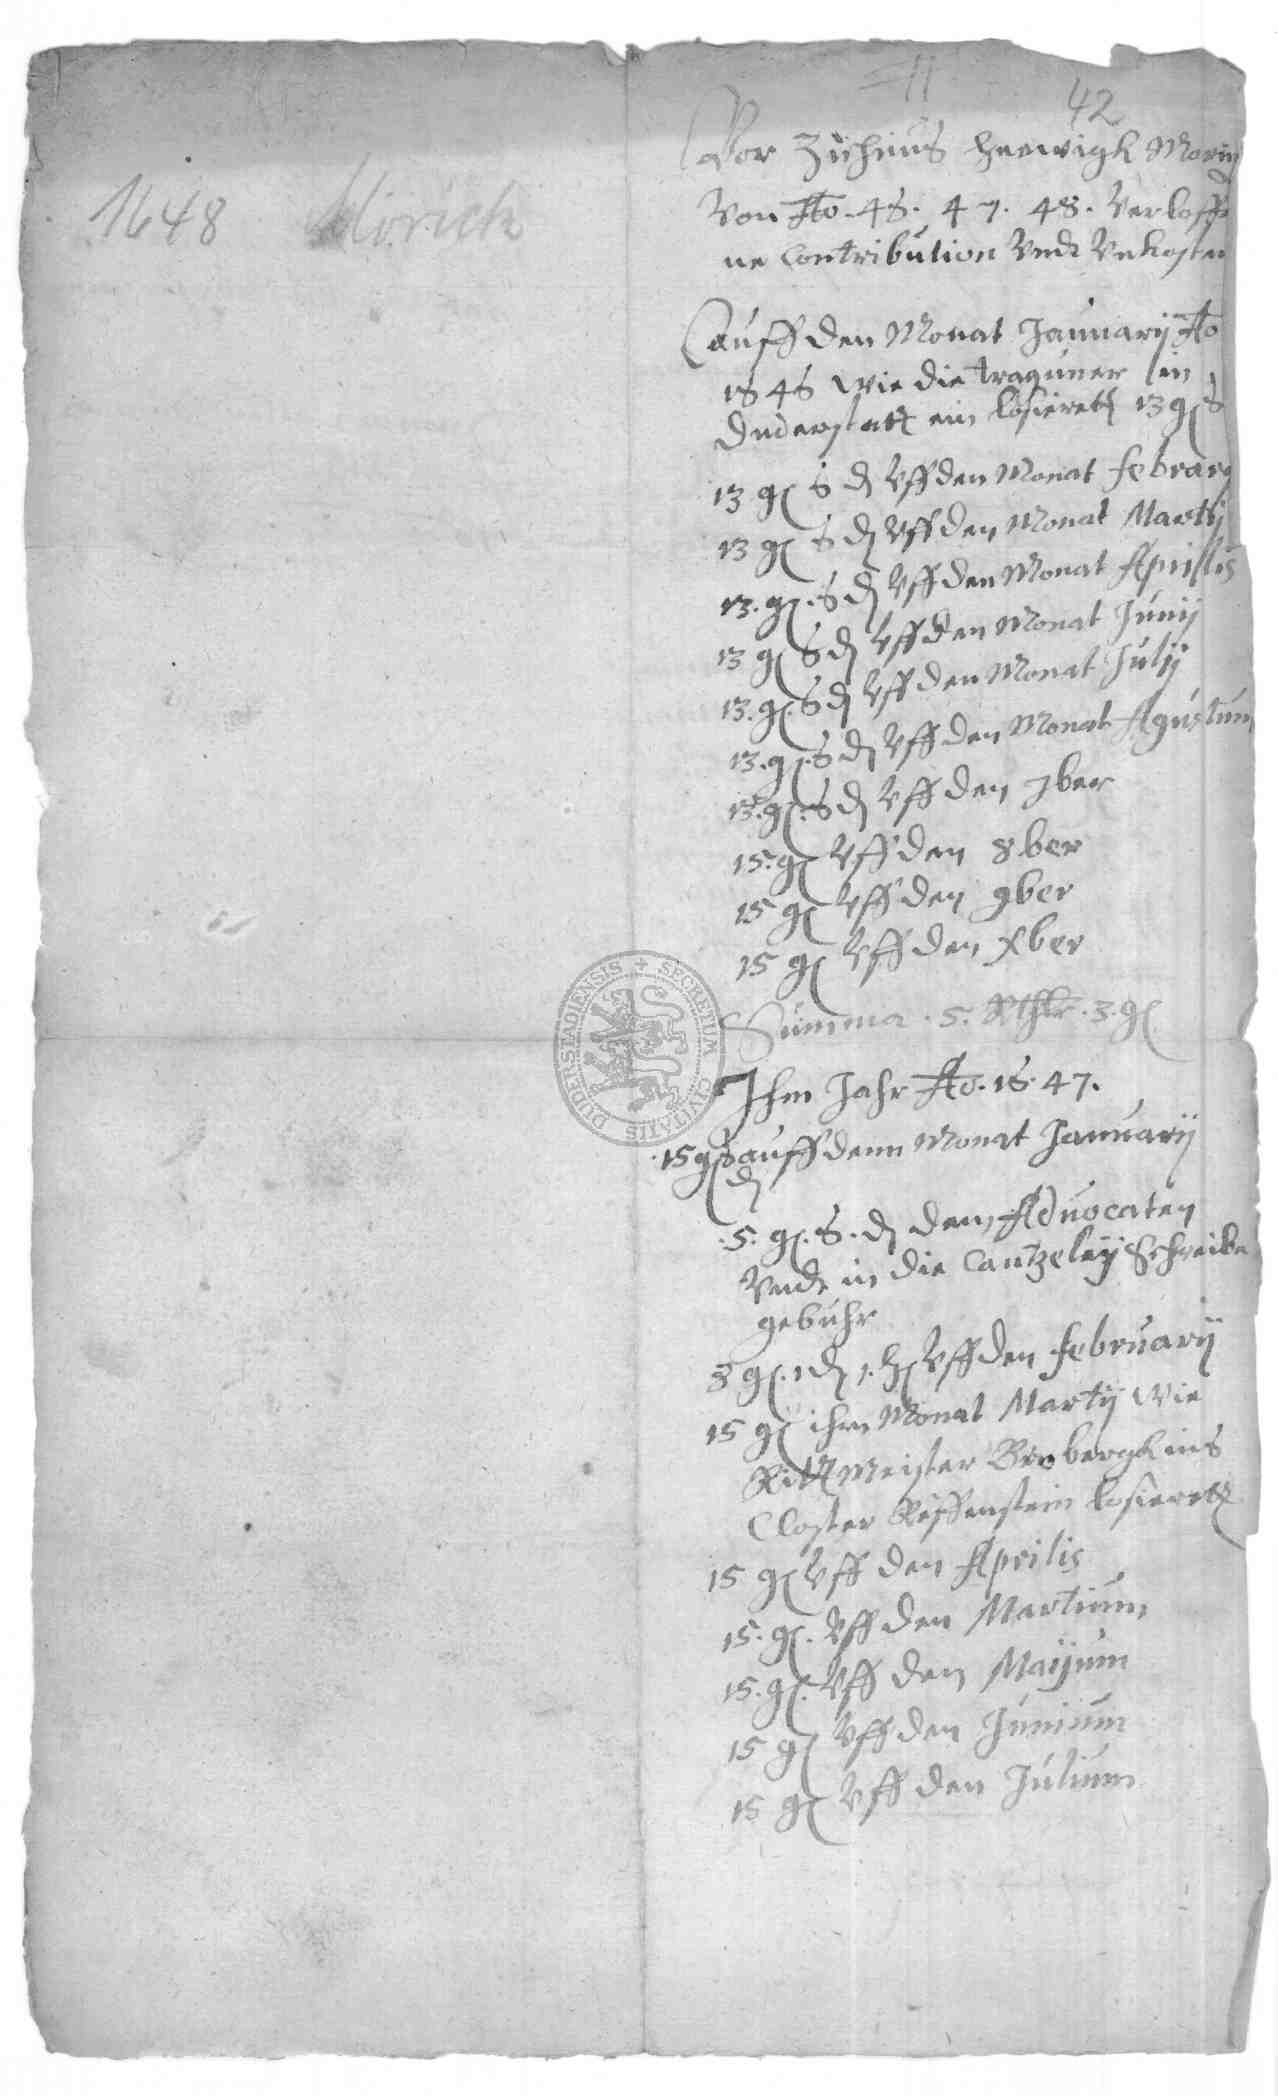 11
42
1648 Mörich
Vor Zuhnus herwigk Morig
Von Ao. 46. 47. 48. verloffe
ne Contribution Undt Unkosten
auff den Monat Januarij Ao
1646 wie die traguner in
Duderstatt ein losirett 13 g 6
13 g 6 d Uff den Monat febrarij
13 g 6 d Uff den Monat Martij
13. g. 6 d Uff den Monat Aprillis
13 g 6 d Uff den Monat Junij
13. g. 6 d Uff den Monat Julij
13. g. 6 d Uff den Monat Agustum
13. g. 6 d Uff den 7ber
15. g Uff den 8.ber
15 g Uff den 9ber
15 g Uff den Xber
Summa . 5. Rthlr . 3. g
Ihm Jahr Ao. 16. 47.
15 g 6 auff denn Monat Januarij
d
5. g. 6. d dem Advocaten
Undt in die Cantzeley Schreibe
gebuhr
8 g. 1 d 1. h Uff den februarij
15 g ihm Monat Martij wie
Ritt Meister Brobergk ins
Closter Reffenstein losirett
15 g Uff den Aprilis
15. g. Uff den Martium
15. g. Uff den Maijum
15 g Uff den Junium
15 g Uff den Julium
SECRETUM CIVITATIS DUDERSTADIENSIS